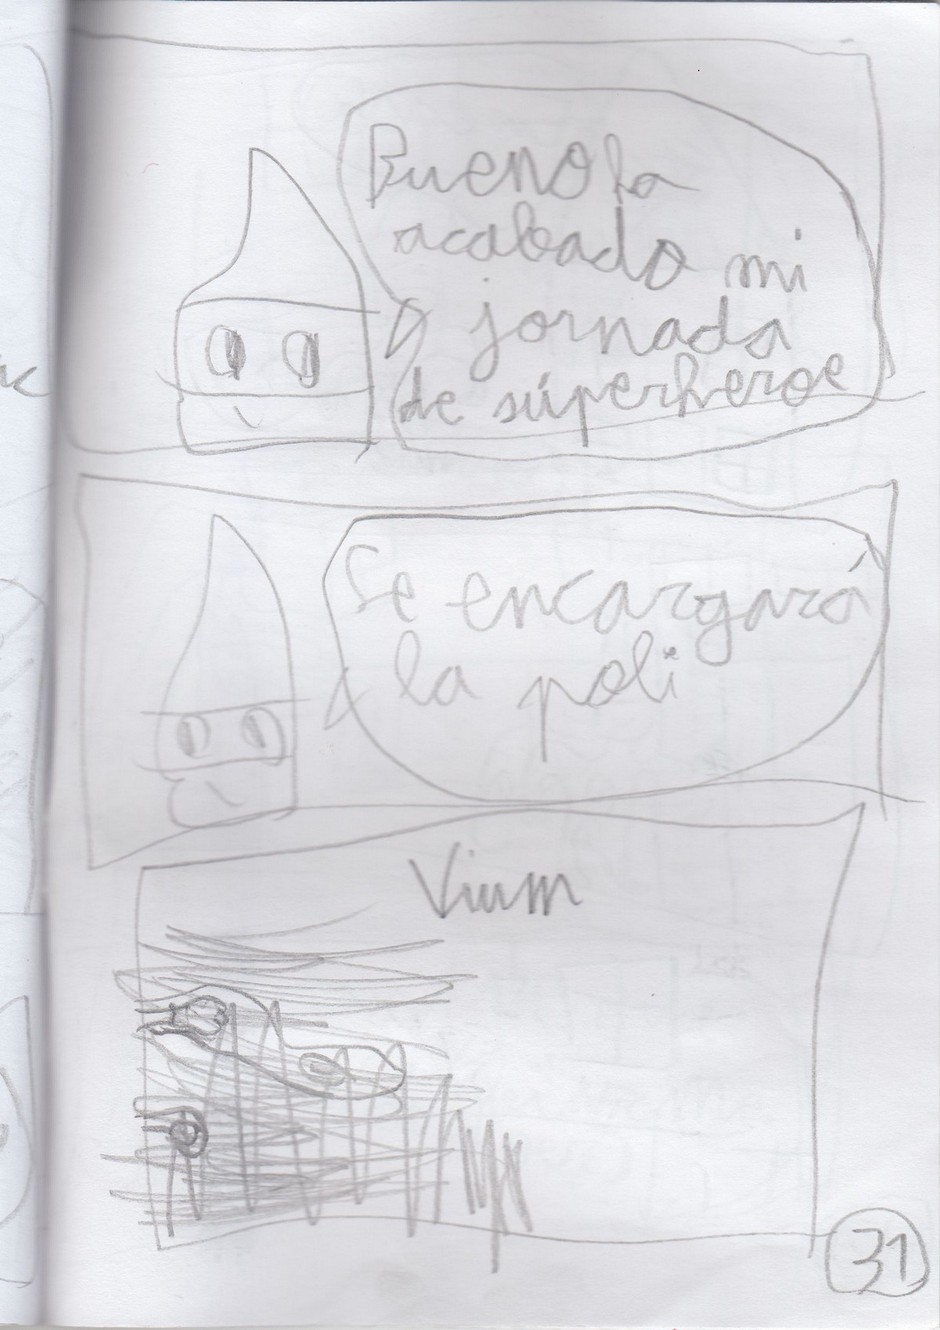 Bueno ha
acabado mi
jornada
de súperheroe
Se encargará
la poli
Vium
31